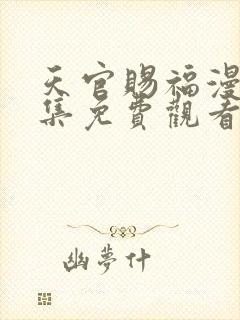 天官賜福漫
集免費觀看
幽夢什